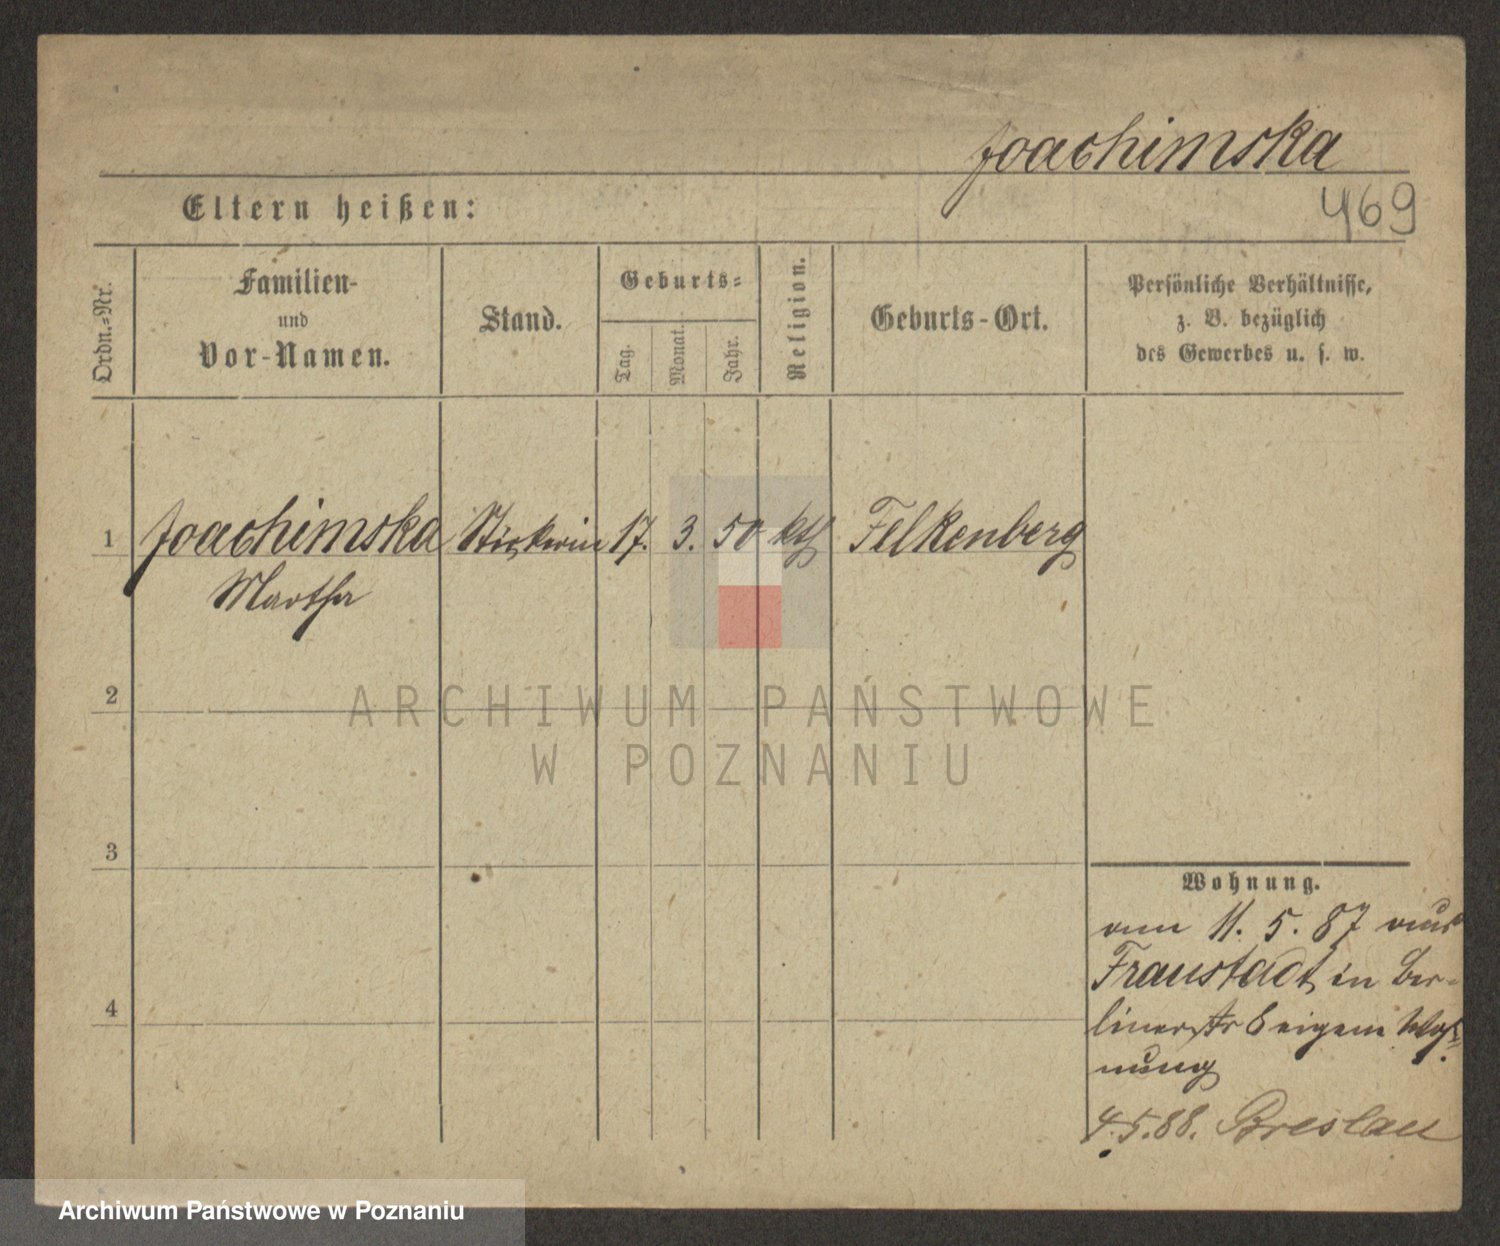 Joachimska
Eltern heißen:
469
Ordn.-Nr.
Familien-
und
Vor-Namen.
Stand.
Geburts-
Tag.
Monat.
Jahr.
Religion.
Geburts-Ort.
Persönliche Verhältnisse,
z. B. bezüglich
des Gewerbes u. s. w.
1 Joachimska 17. 3. 50 kth Felkenberg
Martha
2
ARCHIWUM PAŃSTWOWE
W POZNANIU
3
Wohnung.
11. 5. 87 aus
Fraustadt in Ber-
linerstr 6 eigene Woh-
nung
4
4.5.88. Breslau
Archiwum Państwowe w Poznaniu